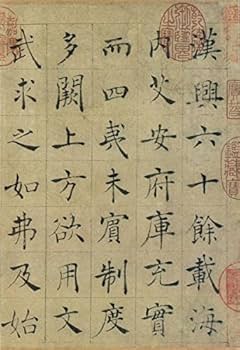 漢興六十餘載海
內艾安府庫充實
而四夷未賓制度
多闕上方欲用文
武求之如弗及始